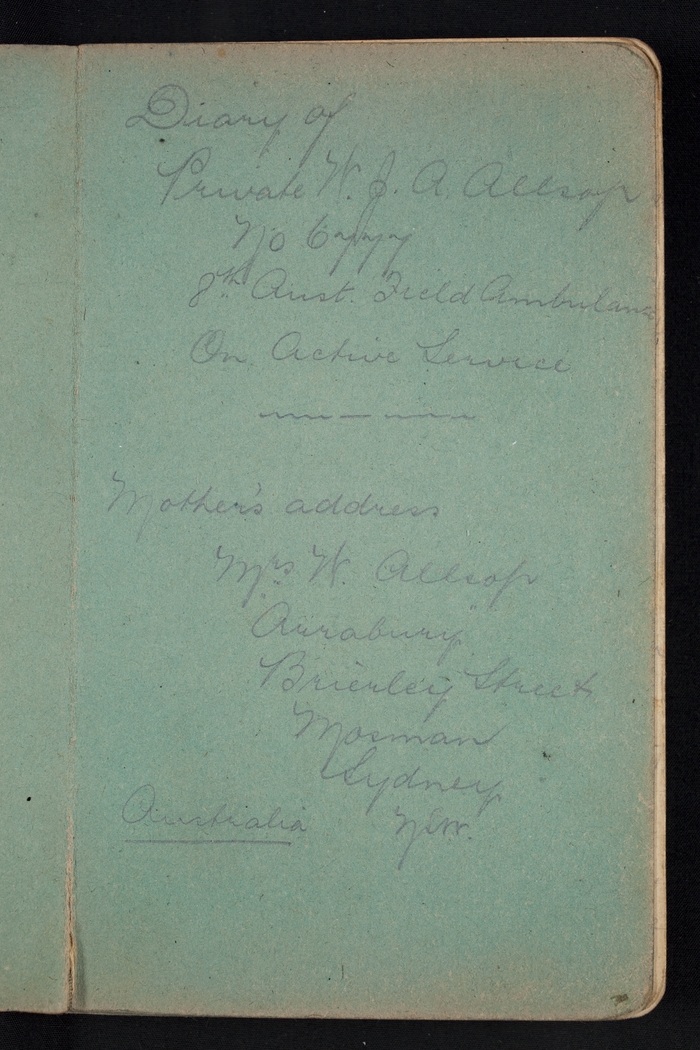 Diary of
Private W. J. A. Allsop
No 6777
8th Aust. Field Ambulance
On Active Service
Mother's address
Mrs. W. Allsop
Arrabury
Brierley Street
Mosman
Sydney
Australia NSW.